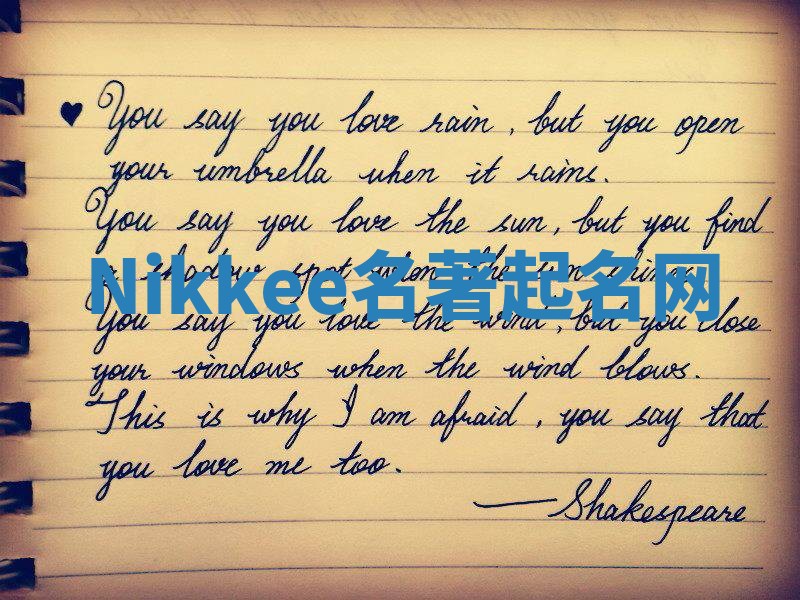 ♥ You say you love rain, but you open
your umbrella when it rains.
You say you love the sun, but you find
a shadow spot when the sun shines.
Nikkee名著起名网
You say you love the wind, but you close
your windows when the wind blows.
This is why I am afraid, you say that
you love me too.
—Shakespeare